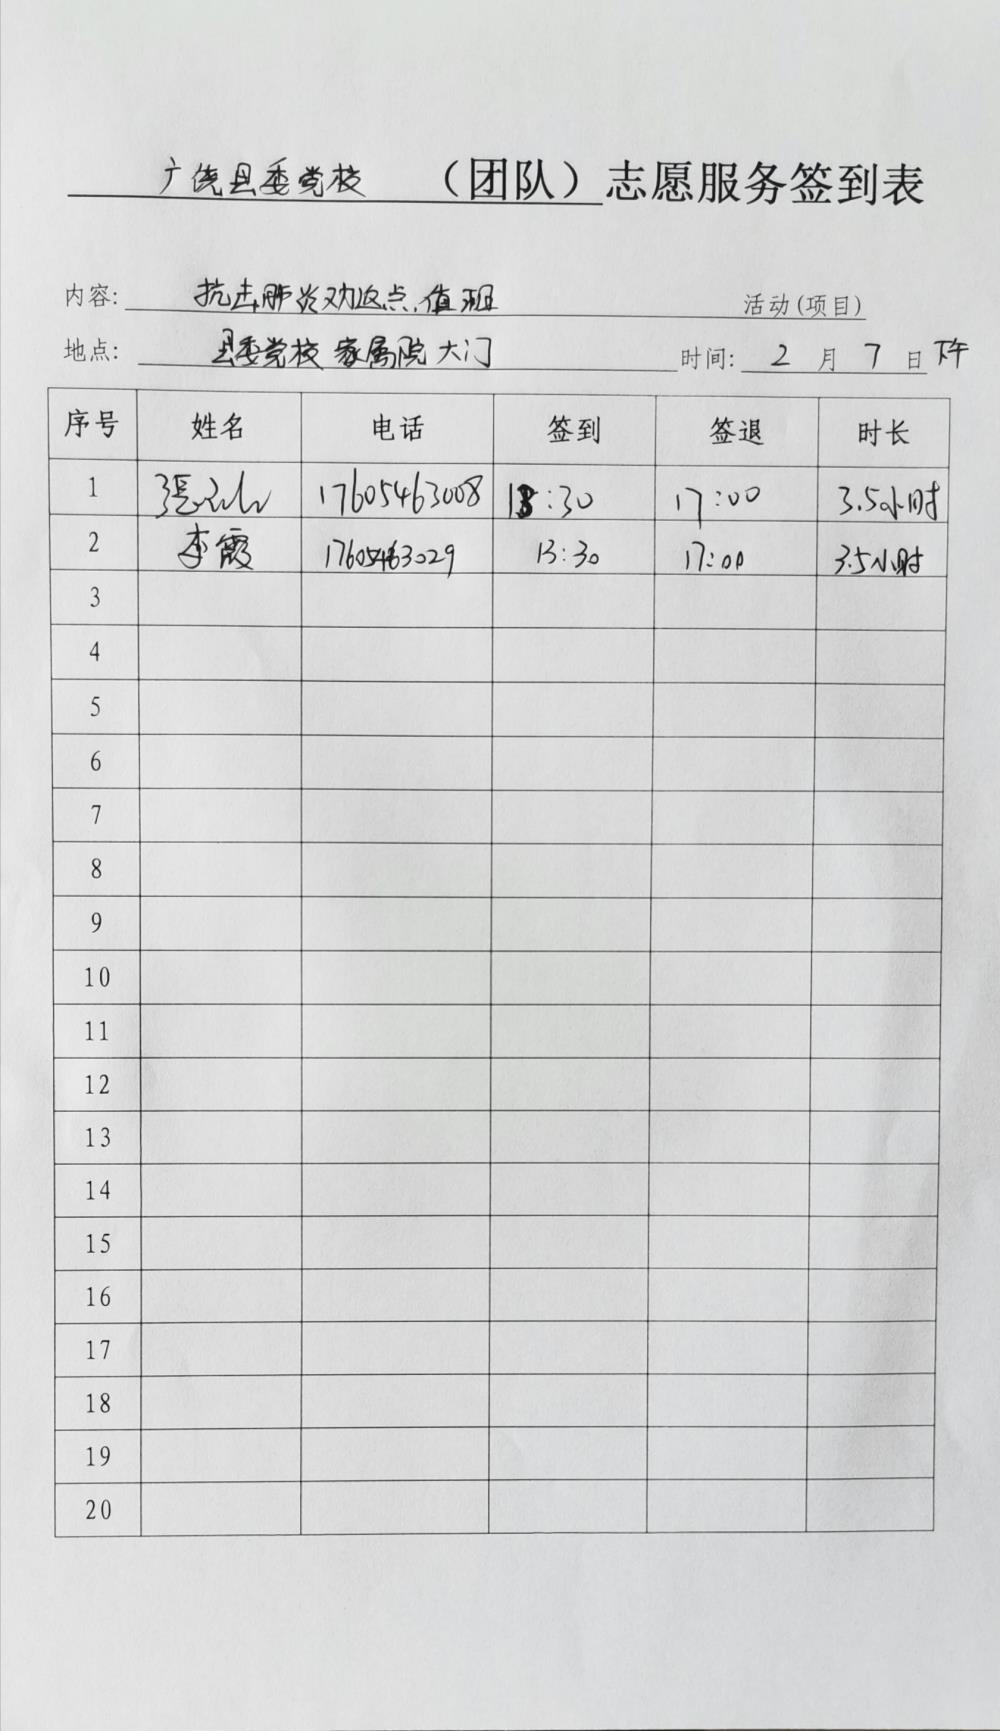 广饶县委党校 （团队）志愿服务签到表
内容: 抗击肺炎劝返点值班 活动(项目)
地点: 县委党校家属院大门 时间: 2 月 7 日下午
序号 姓名 电话 签到 签退 时长
1 張 17605463008 13:30 17:00 3.5小时
2 李霞 17605463029 13:30 17:00 3.5小时
3
4
5
6
7
8
9
10
11
12
13
14
15
16
17
18
19
20